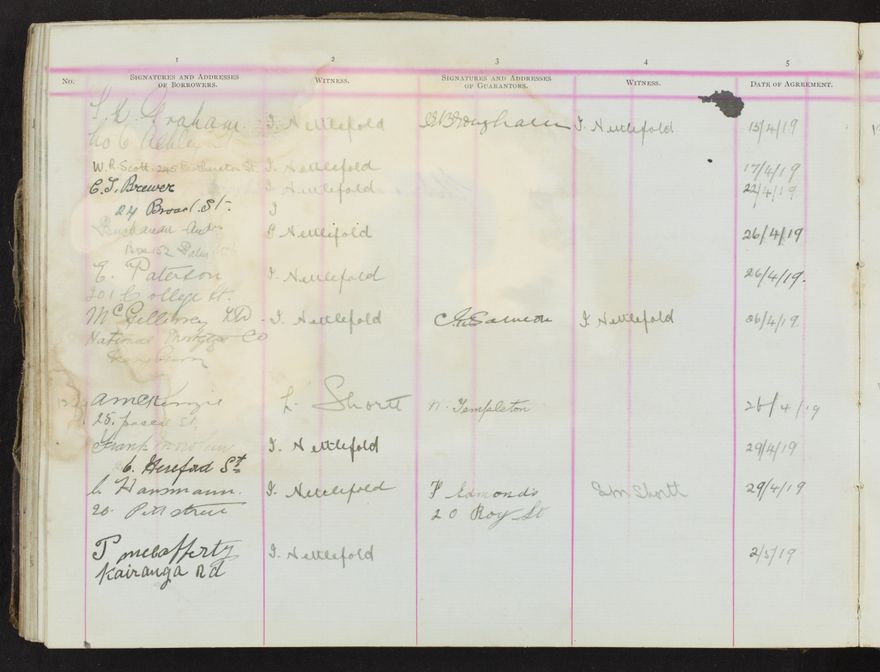 1 2 3 4 5
No. Signatures and Addresses of Borrowers. Witness. Signatures and Addresses of Guarantors. Witness. Date of Agreement.
Graham I. Nettlefold I. Nettlefold 15/4/19
Ashley St
W. R. Scott 245 St. I. Nettlefold 17/4/19
C. J. Brewer I. Nettlefold 22/4/19
24 Broad. St. I
Buchanan I Nettlefold 26/4/19
Box 152 Palm
E. Paterson I. Nettlefold 26/4/19.
201 College St.
I. Nettlefold I. Nettlefold 26/4/19
National Co
A McKenzie L. Shortt Templeton 26/4/19
25. St.
Frank I. Nettlefold 29/4/19
6. Hereford St
C. Hansmann. I. Nettlefold F Edmonds Shortt 29/4/19
20. Pitt street 20 Roy St
P McCafferty I. Nettlefold 2/5/19
Kairanga Rd